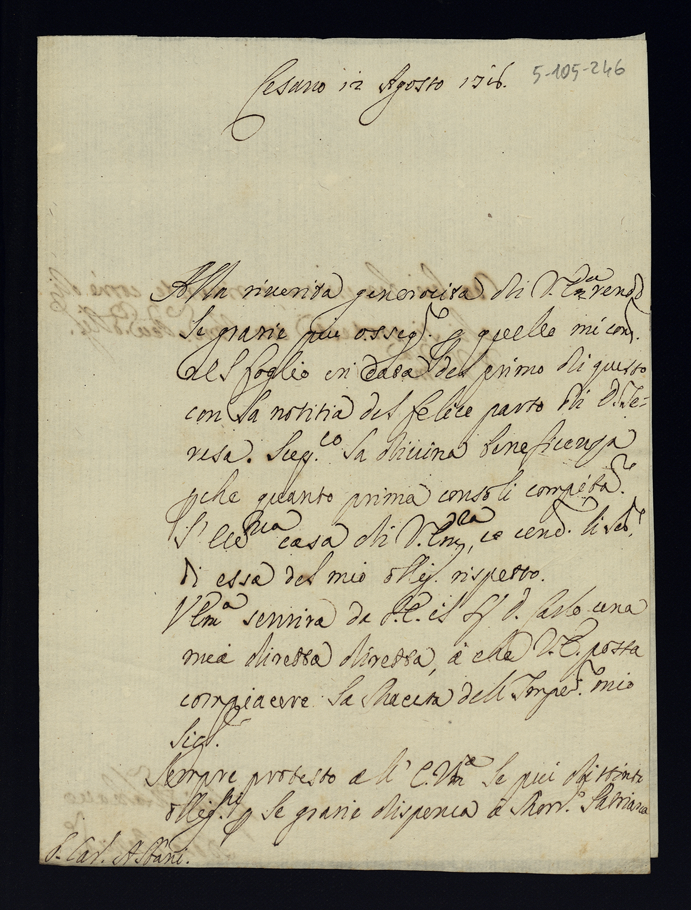 Cesano 12 Agosto 1716.
5-105-246
Alla riverita generosità di V. Em.za rendo
le grazie più osseq.e p quello mi con.
nel foglio in data del primo di questo
con la notitia del felice parto di D. Te=
resa. la divina beneficenza
pche quanto prima consoli compita.te
l'Ecc.ma casa di V. Em.za,
di essa del mio oblig. rispetto.
V. Em.a sentirà da S. E. il S.r D. Carlo una
mea diretta diretta, à che V. E. possa
compiacere la Maestà dell'Imper.e mio
Sig.re
Sempre protesto all' E. V.ra le più distinte
oblig.ni p le grazie dispensa à Mon.r
S. Car. Albani.